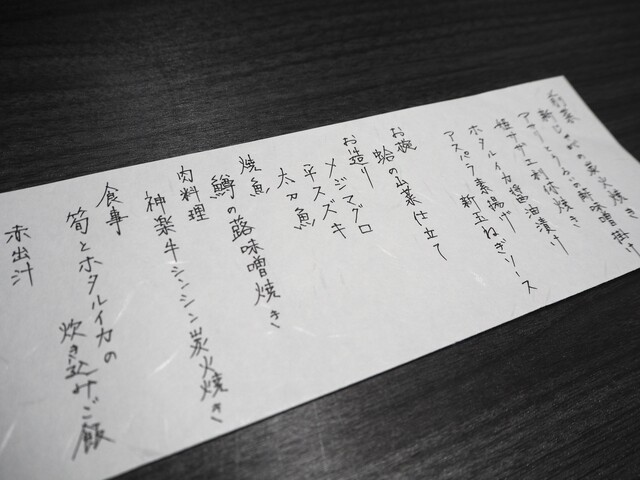 前菜
新じゃが炭火焼き
アサリとうるいの酢味噌掛け
姫サザエ利休焼き
ホタルイカ醤油漬け
アスパラ素揚げ 新玉ねぎソース
お椀
蛤の山菜仕立て
お造り
メジマグロ
平スズキ
太刀魚
焼魚
鱒の蕗味噌焼き
肉料理
神楽牛シンシン炭火焼き
食事
筍とホタルイカの
炊き込みご飯
赤出汁